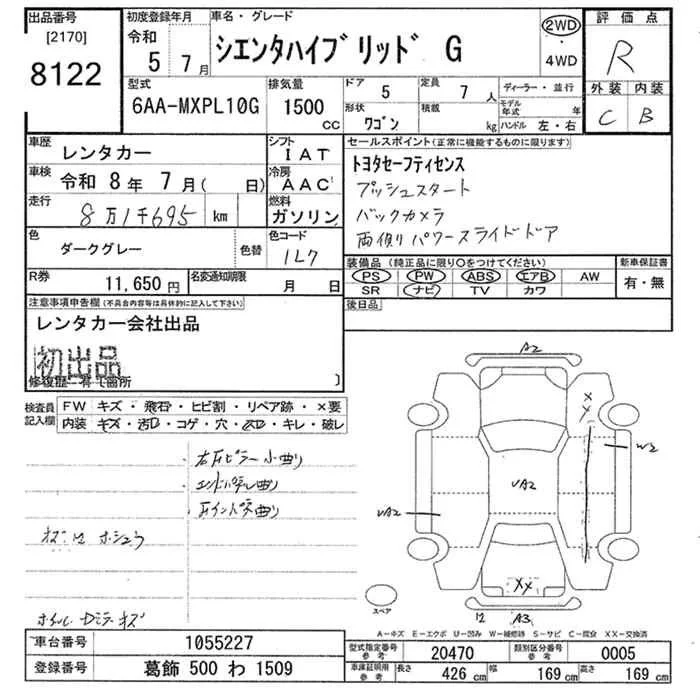 出品番号
[2170]
8122
初度登録年月
令和
5 7月
車名・グレード
シエンタハイブリッド G
2WD
・
4WD
評価点
R
外装 内装
C B
型式
6AA-MXPL10G
排気量
1500
CC
ドア 5
定員 7人
形状 ワゴン
積載 kg
ディーラー・並行
モデル年式 年
ハンドル 左・右
車歴
レンタカー
シフト
IAT
車検 令和 8年 7月( 日)
冷房
AAC
走行
8万1千695 km
燃料
ガソリン
色
ダークグレー
色替
色コード
1L7
R券
11,650円
名変通知期限
月 日
セールスポイント(正常に機能するものに限ります)
トヨタセーフティセンス
プッシュスタート
バックカメラ
両側パワースライドドア
装備品(純正品に限り○をつけてください)
PS PW ABS エアB AW
SR ナビ TV カワ
新車保証書
有・無
後日品
注意事項申告欄(不具合内容等は具体的に記入して下さい)
レンタカー会社出品
初出品
修復歴
箇所
検査員
記入欄
FW キズ・飛石・ヒビ割・リペア跡・×要
内装 キズ・汚レ・コゲ・穴・スレ・キレ・破レ
右Rピラー小曲り
エンドパネル曲り
Rインパネ曲り
ホシュウ
ホイール Dミラーキズ
A2
X
X
W2
VA2
VA2
XX
12 A3
スペア
A-キズ E-エクボ U-凹み W-補修跡 S-サビ C-腐食 XX-交換済
車台番号 1055227
登録番号 葛飾 500 わ 1509
型式指定番号
参考
20470
類別区分番号
参考
0005
車庫証明用
参考
長さ 426 cm 幅 169 cm 高さ 169 cm